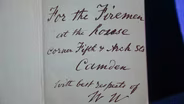 For the Firemen
at the House
corner Fifth & Arch Sts
Camden
with best respects of
W W